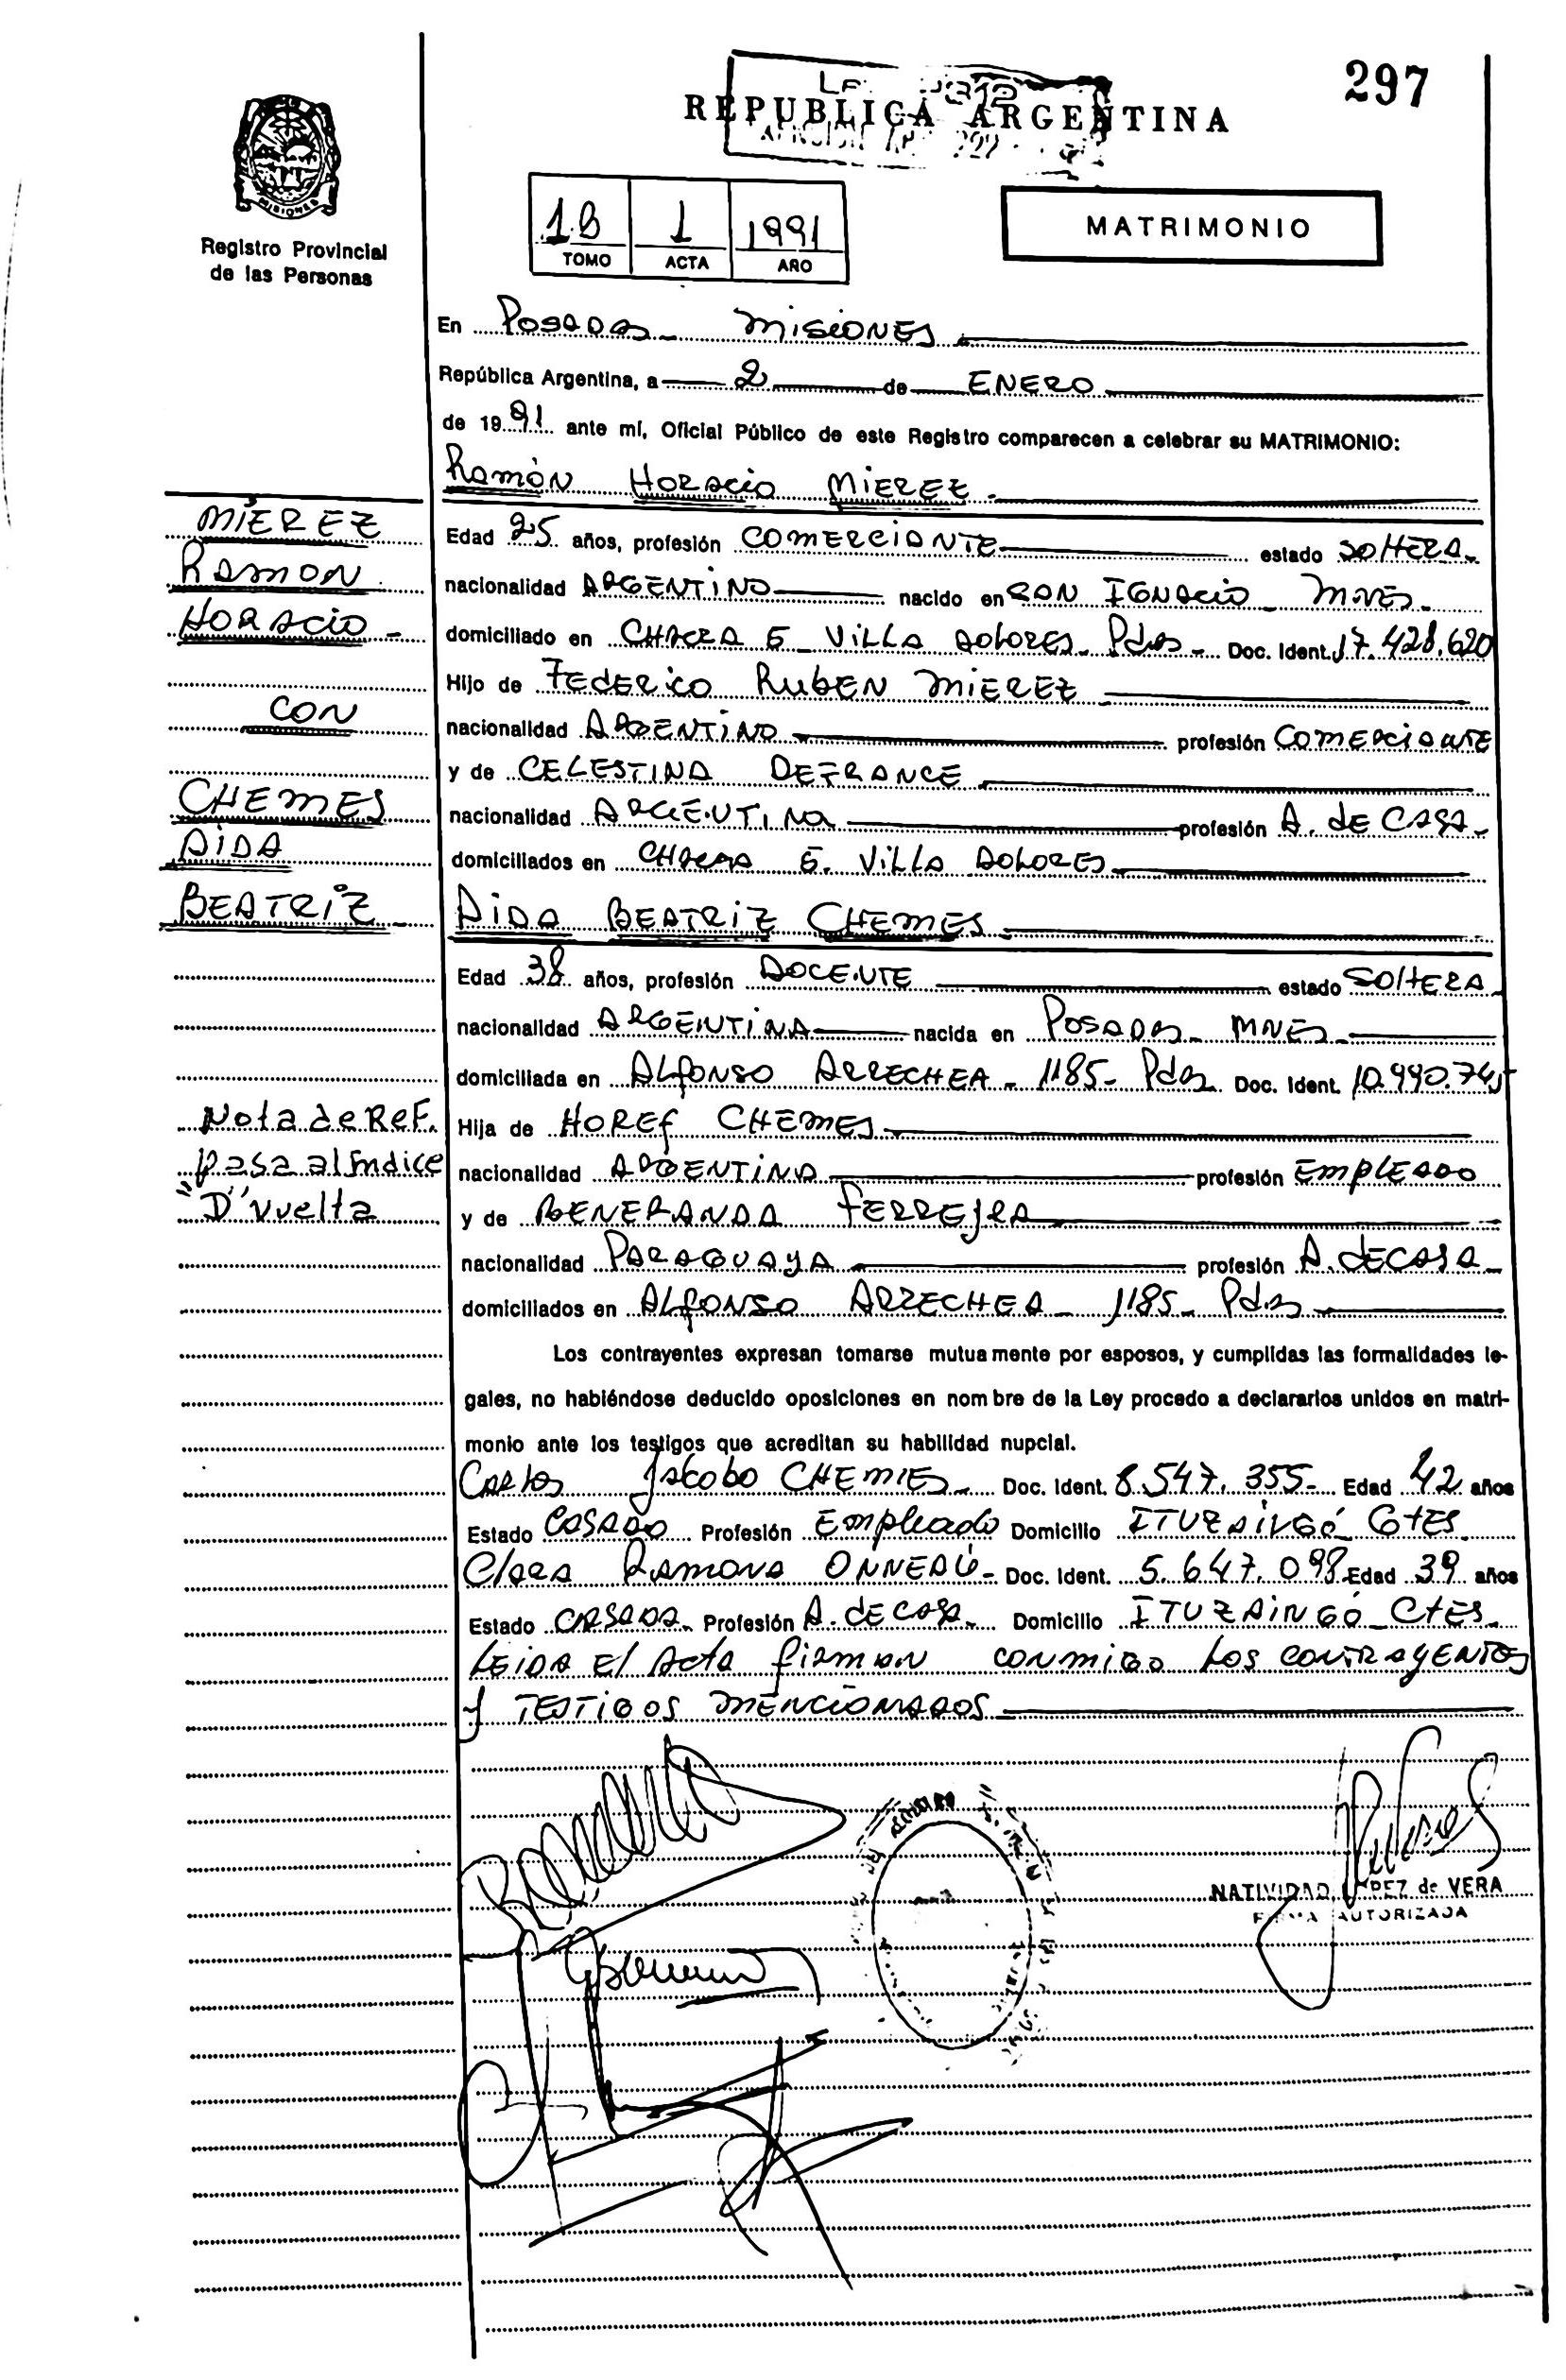 297
REPUBLICA ARGENTINA
MISIONES
Registro Provincial
de las Personas
1B 1 1991
TOMO ACTA AÑO
MATRIMONIO
En Posadas - Misiones
República Argentina, a 2 de ENERO
de 1991 ante mí, Oficial Público de este Registro comparecen a celebrar su MATRIMONIO:
Ramón Horacio Mierez
MIEREZ
RAMON
HORACIO -
CON
CHEMES
AIDA
BEATRIZ
Edad 25 años, profesión COMERCIANTE estado SOLTERA-
nacionalidad ARGENTINO nacido en SAN IGNACIO - MNES-
domiciliado en CHACRA 5 - VILLA DOLORES - Pdas - Doc. Ident. 17.428.620
Hijo de FEDERICO RUBEN MIEREZ
nacionalidad ARGENTINO profesión COMERCIANTE
y de CELESTINA DEFRANCE
nacionalidad ARGENTINA profesión A. de CASA-
domiciliados en CHACRA 5. VILLA DOLORES
AIDA BEATRIZ CHEMES
Edad 38 años, profesión DOCENTE estado SOLTERA
nacionalidad ARGENTINA nacida en POSADAS - MNES
domiciliada en ALFONSO ARRECHEA - 1185 - Pdas Doc. Ident. 10.990.745
Nota de Ref.
pasa al Indice
"D" vuelta
Hija de HOREF CHEMES
nacionalidad ARGENTINA profesión EMPLEADO
y de BENERANDA FERREJRA
nacionalidad PARAGUAYA profesión A. DE CASA
domiciliados en ALFONSO ARRECHEA - 1185 - Pdas
Los contrayentes expresan tomarse mutuamente por esposos, y cumplidas las formalidades le-
gales, no habiéndose deducido oposiciones en nombre de la Ley procedo a declararlos unidos en matri-
monio ante los testigos que acreditan su habilidad nupcial.
Carlos Jacobo CHEMES - Doc. Ident. 8.547.355- Edad 42 años
Estado CASADO Profesión Empleado Domicilio ITUZAINGÓ Ctes
Clara Ramona Doc. Ident. 5.647.098 Edad 39 años
Estado CASADA Profesión A. de CASA - Domicilio ITUZAINGÓ - CtES-
LEIDA El Acta firman conmigo los contrayentes
y TESTIGOS MENCIONADOS
NATIVIDAD LOPEZ de VERA
FIRMA AUTORIZADA